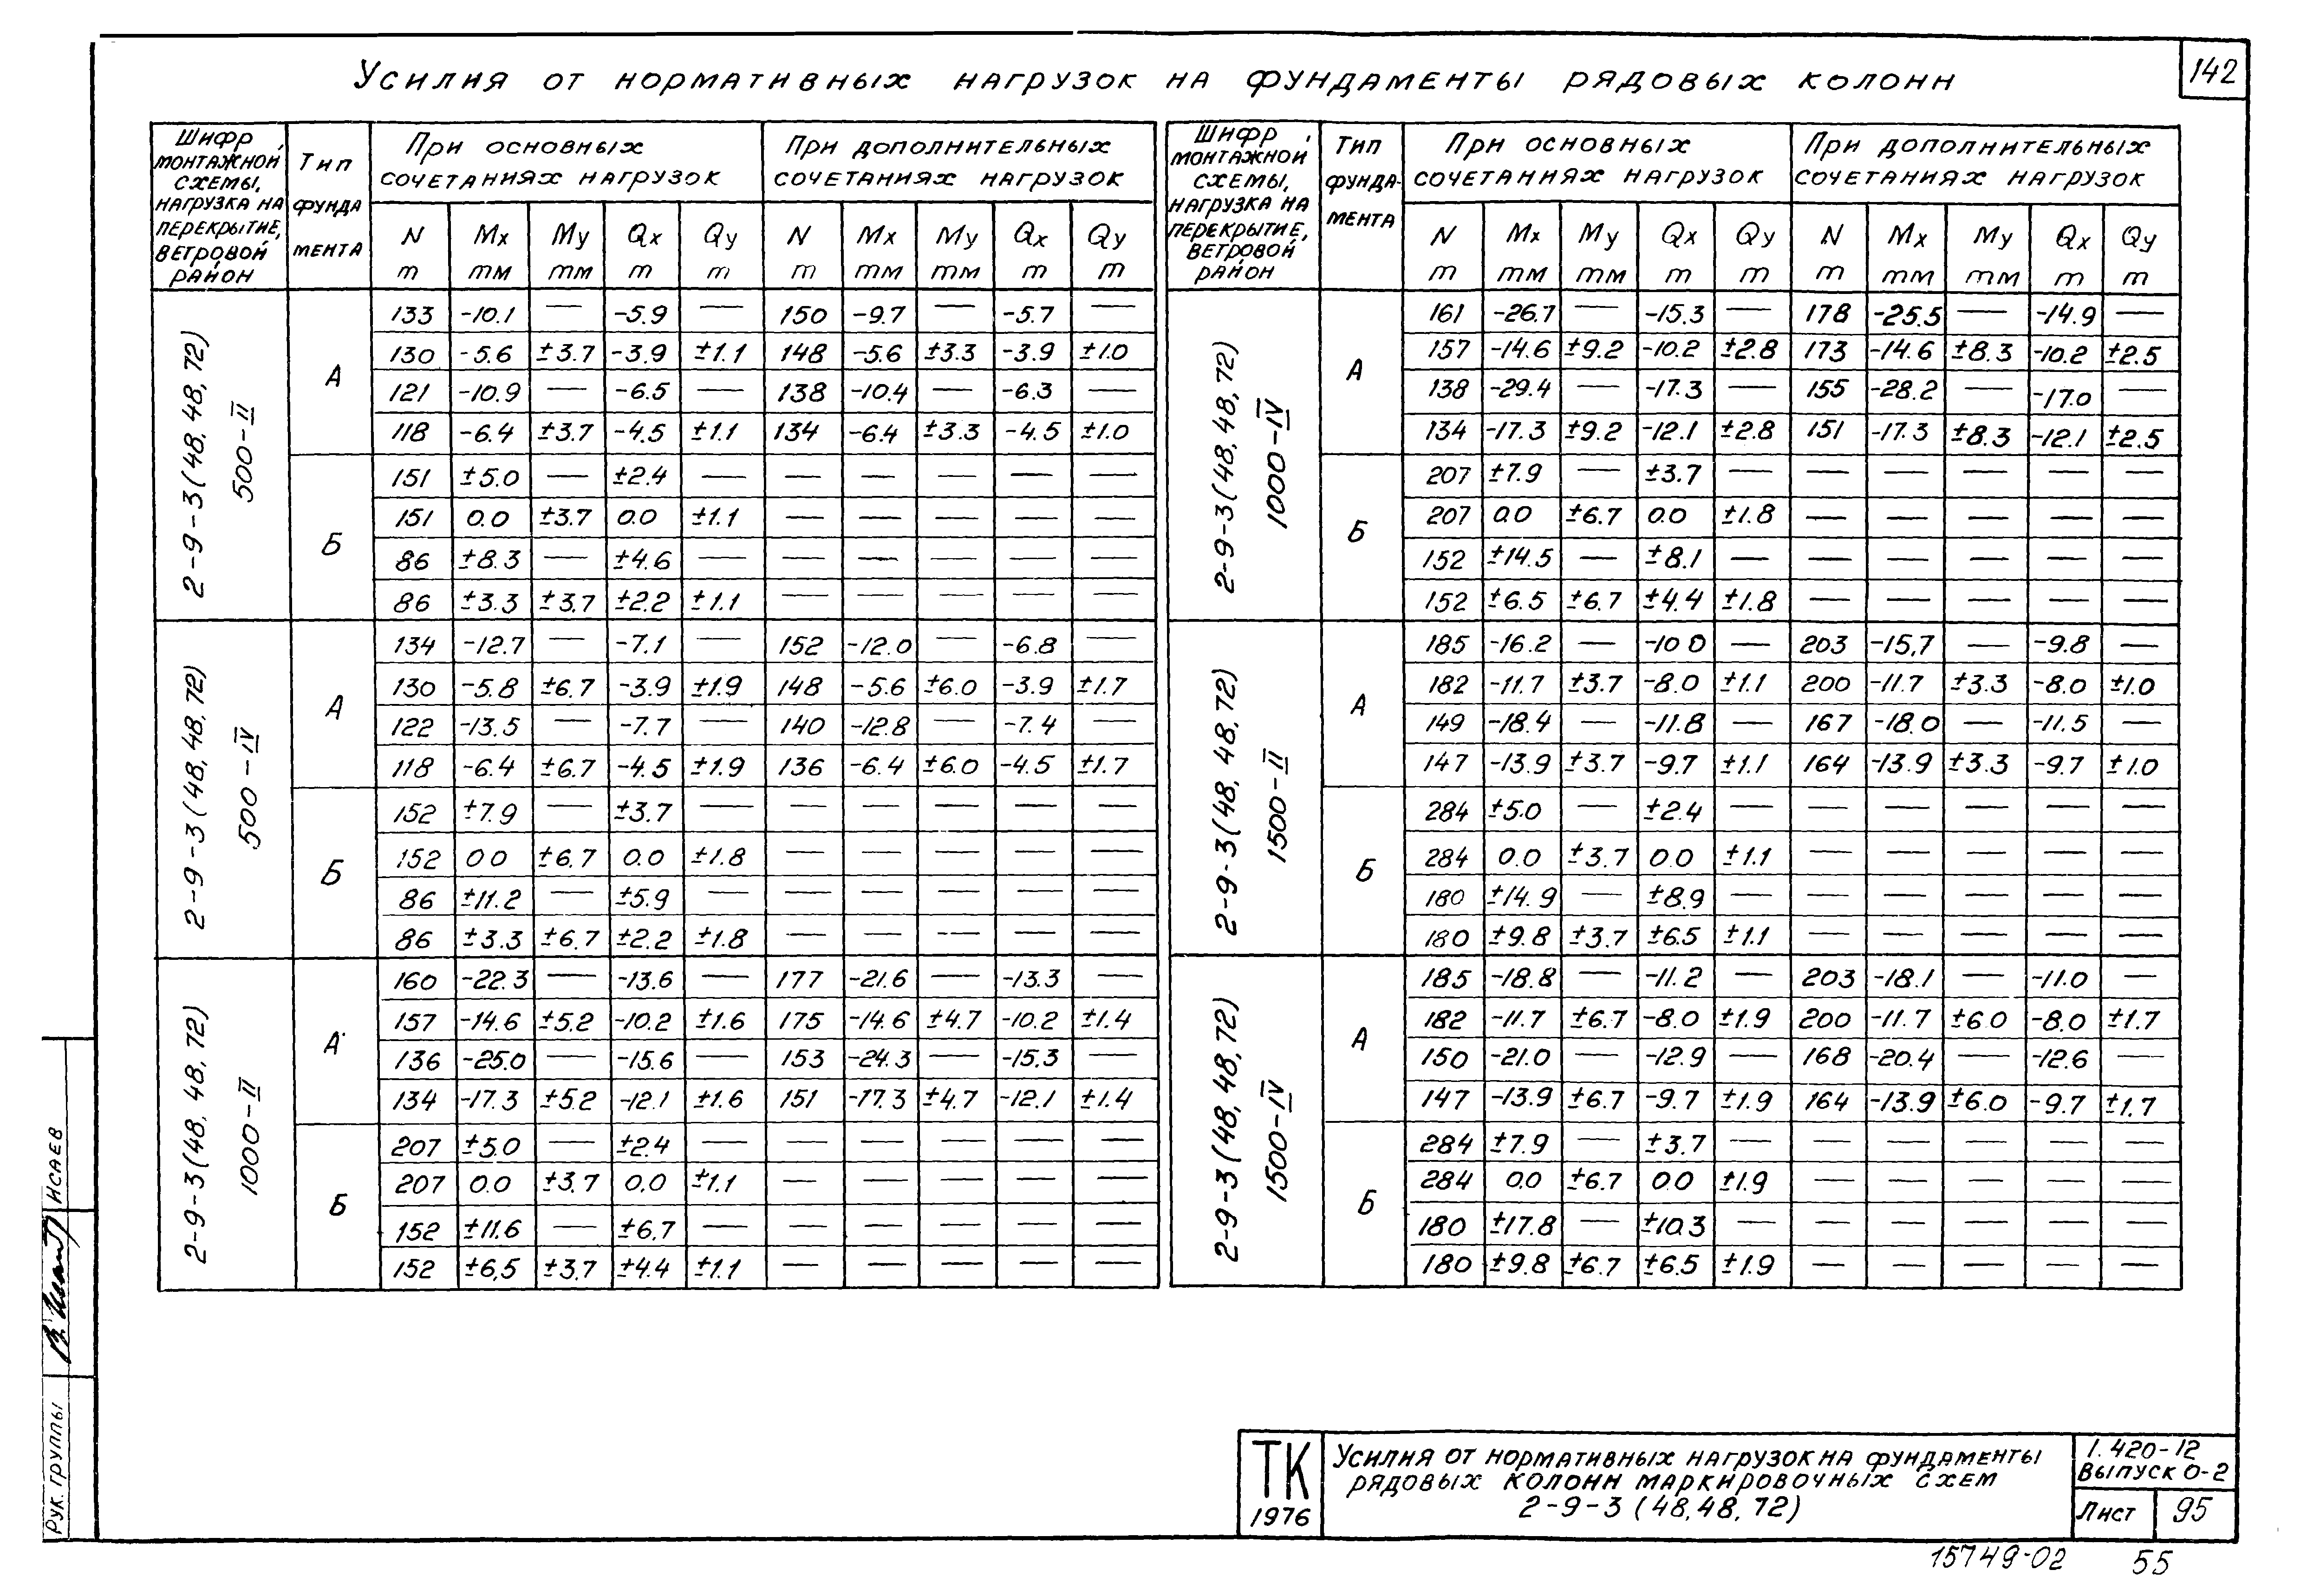 142
Усилия от нормативных нагрузок на фундаменты рядовых колонн
Шифр монтажной схемы, нагрузка на перекрытие, ветровой район
Тип фундамента
При основных сочетаниях нагрузок
При дополнительных сочетаниях нагрузок
N т Mx тм My тм Qx т Qy т N т Mx тм My тм Qx т Qy т
2-9-3(48, 48, 72) 500-II
А
133 -10.1 — -5.9 — 150 -9.7 — -5.7 —
130 -5.6 ±3.7 -3.9 ±1.1 148 -5.6 ±3.3 -3.9 ±1.0
121 -10.9 — -6.5 — 138 -10.4 — -6.3 —
118 -6.4 ±3.7 -4.5 ±1.1 134 -6.4 ±3.3 -4.5 ±1.0
Б
151 ±5.0 — ±2.4 — — — — — —
151 0.0 ±3.7 0.0 ±1.1 — — — — —
86 ±8.3 — ±4.6 — — — — — —
86 ±3.3 ±3.7 ±2.2 ±1.1 — — — — —
2-9-3(48, 48, 72) 500-IV
А
134 -12.7 — -7.1 — 152 -12.0 — -6.8 —
130 -5.8 ±6.7 -3.9 ±1.9 148 -5.6 ±6.0 -3.9 ±1.7
122 -13.5 — -7.7 — 140 -12.8 — -7.4 —
118 -6.4 ±6.7 -4.5 ±1.9 136 -6.4 ±6.0 -4.5 ±1.7
Б
152 ±7.9 — ±3.7 — — — — — —
152 0.0 ±6.7 0.0 ±1.8 — — — — —
86 ±11.2 — ±5.9 — — — — — —
86 ±3.3 ±6.7 ±2.2 ±1.8 — — — — —
2-9-3(48, 48, 72) 1000-II
А
160 -22.3 — -13.6 — 177 -21.6 — -13.3 —
157 -14.6 ±5.2 -10.2 ±1.6 175 -14.6 ±4.7 -10.2 ±1.4
136 -25.0 — -15.6 — 153 -24.3 — -15.3 —
134 -17.3 ±5.2 -12.1 ±1.6 151 -17.3 ±4.7 -12.1 ±1.4
Б
207 ±5.0 — ±2.4 — — — — — —
207 0.0 ±3.7 0.0 ±1.1 — — — — —
152 ±11.6 — ±6.7 — — — — — —
152 ±6.5 ±3.7 ±4.4 ±1.1 — — — — —
Шифр монтажной схемы, нагрузка на перекрытие, ветровой район
Тип фунда-мента
При основных сочетаниях нагрузок
При дополнительных сочетаниях нагрузок
N т Mx тм My тм Qx т Qy т N т Mx тм My тм Qx т Qy т
2-9-3(48, 48, 72) 1000-IV
А
161 -26.7 — -15.3 — 178 -25.5 — -14.9 —
157 -14.6 ±9.2 -10.2 ±2.8 173 -14.6 ±8.3 -10.2 ±2.5
138 -29.4 — -17.3 — 155 -28.2 — -17.0 —
134 -17.3 ±9.2 -12.1 ±2.8 151 -17.3 ±8.3 -12.1 ±2.5
Б
207 ±7.9 — ±3.7 — — — — — —
207 0.0 ±6.7 0.0 ±1.8 — — — — —
152 ±14.5 — ±8.1 — — — — — —
152 ±6.5 ±6.7 ±4.4 ±1.8 — — — — —
2-9-3(48, 48, 72) 1500-II
А
185 -16.2 — -10.0 — 203 -15.7 — -9.8 —
182 -11.7 ±3.7 -8.0 ±1.1 200 -11.7 ±3.3 -8.0 ±1.0
149 -18.4 — -11.8 — 167 -18.0 — -11.5 —
147 -13.9 ±3.7 -9.7 ±1.1 164 -13.9 ±3.3 -9.7 ±1.0
Б
284 ±5.0 — ±2.4 — — — — — —
284 0.0 ±3.7 0.0 ±1.1 — — — — —
180 ±14.9 — ±8.9 — — — — — —
180 ±9.8 ±3.7 ±6.5 ±1.1 — — — — —
2-9-3(48, 48, 72) 1500-IV
А
185 -18.8 — -11.2 — 203 -18.1 — -11.0 —
182 -11.7 ±6.7 -8.0 ±1.9 200 -11.7 ±6.0 -8.0 ±1.7
150 -21.0 — -12.9 — 168 -20.4 — -12.6 —
147 -13.9 ±6.7 -9.7 ±1.9 164 -13.9 ±6.0 -9.7 ±1.7
Б
284 ±7.9 — ±3.7 — — — — — —
284 0.0 ±6.7 0.0 ±1.9 — — — — —
180 ±17.8 — ±10.3 — — — — — —
180 ±9.8 ±6.7 ±6.5 ±1.9 — — — — —
Рук. группы Исаев
ТК
1976
Усилия от нормативных нагрузок на фундаменты
рядовых колонн маркировочных схем
2-9-3 (48, 48, 72)
1.420-12
Выпуск 0-2
Лист 95
15749-02 55